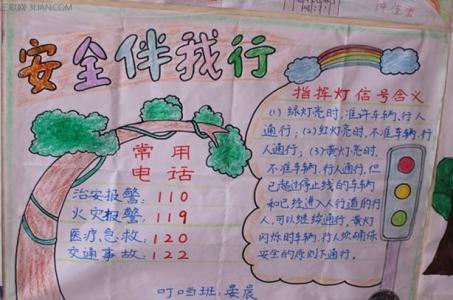 三联网 3LIAN.COM
安全伴我行
常用
电话
治安报警:110
火灾报警:119
医疗急救:120
交通事故:122
叮当班:晏晨
指挥灯信号含义
(1)绿灯亮时,准许车辆、行人
通行;(2)红灯亮时,不准车辆、行
人通行;(3)黄灯亮时,
不准车辆、行人通行,但
已超过停止线的车辆
和已经进入人行道的行
人,可以继续通行,黄灯
闪烁时车辆、行人须确保
安全的原则下通行。